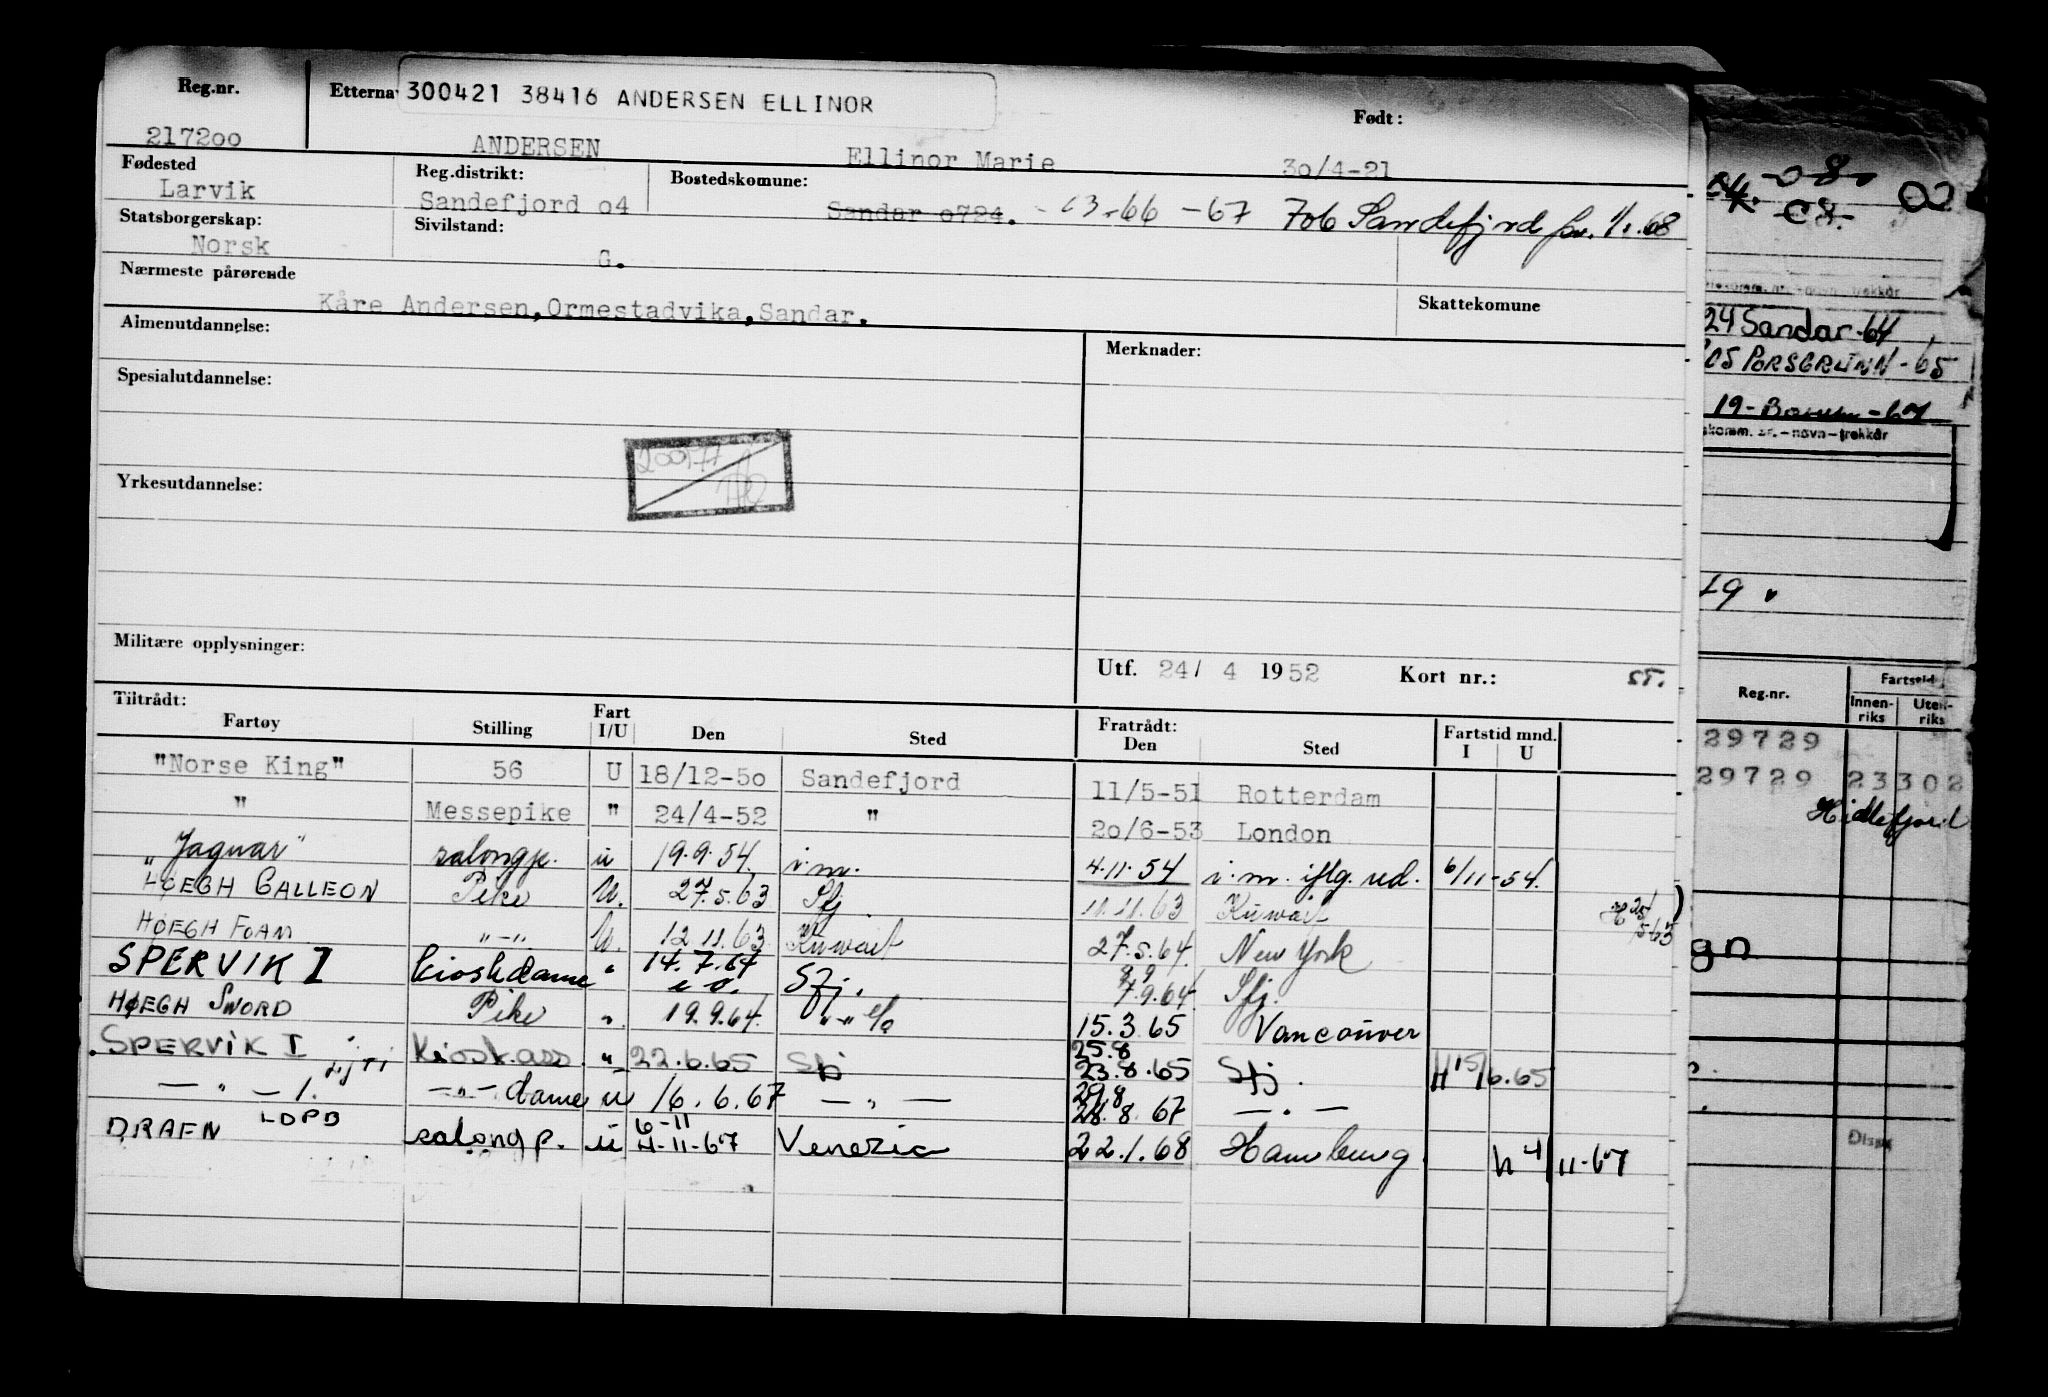 Reg.nr. Etterna 300421 38416 ANDERSEN ELLINOR Født:
217200 ANDERSEN Ellinor Marie 30/4-21
Fødested Reg.distrikt: Bostedskomune:
Larvik Sandefjord 04 Sandar 0724. -66 -67 706 Sandefjord 68
Statsborgerskap: Sivilstand:
Norsk G.
Nærmeste pårørende Skattekomune
Kåre Andersen, Ormestadvika, Sandar.
Almenutdannelse: Merknader:
Spesialutdannelse:
Yrkesutdannelse:
Militære opplysninger:
Utf. 24/ 4 1952 Kort nr.:
Tiltrådt: Fart Fratrådt: Fartstid mnd.
Fartøy Stilling I/U Den Sted Den Sted I U
"Norse King" 56 U 18/12-50 Sandefjord 11/5-51 Rotterdam
" Messepike " 24/4-52 " 20/6-53 London
"Jaguar" salongp. u 19.9.54. i.m. 4.11.54 i.m. iflg. red. 6/11-54.
HØEGH GALLEON Pike U. 27.5.63 Sfj 11.11.63 Kuwait
HØEGH FOAM -"- U. 12.11.63 Kuwait 27.5.64. New York
SPERVIK I kioskdame " 14.7.64 Sfj. 7.9.64 Sfj.
HØEGH SWORD Pike " 19.9.64. -"- 15.3.65 Vancouver
SPERVIK I kiosk.ass. " 22.6.65 Sfj 25.8 23.8.65 Sfj. H 15/6.65
— " — I. LJTI -"- dame u 16.6.67 — " — 29.8 28.8.67 — " —
DRAFN LDPB salong p. u 6-11 4-11-67 Venezia 22.1.68 Hamburg h 4/11-67
24 Sandar-64
05 PORSGRUNN-65
19- -67
skomm. nr.-navn-trekkår
Reg.nr. Fartseid
Innen-riks Uten-riks
29729
29729 23302